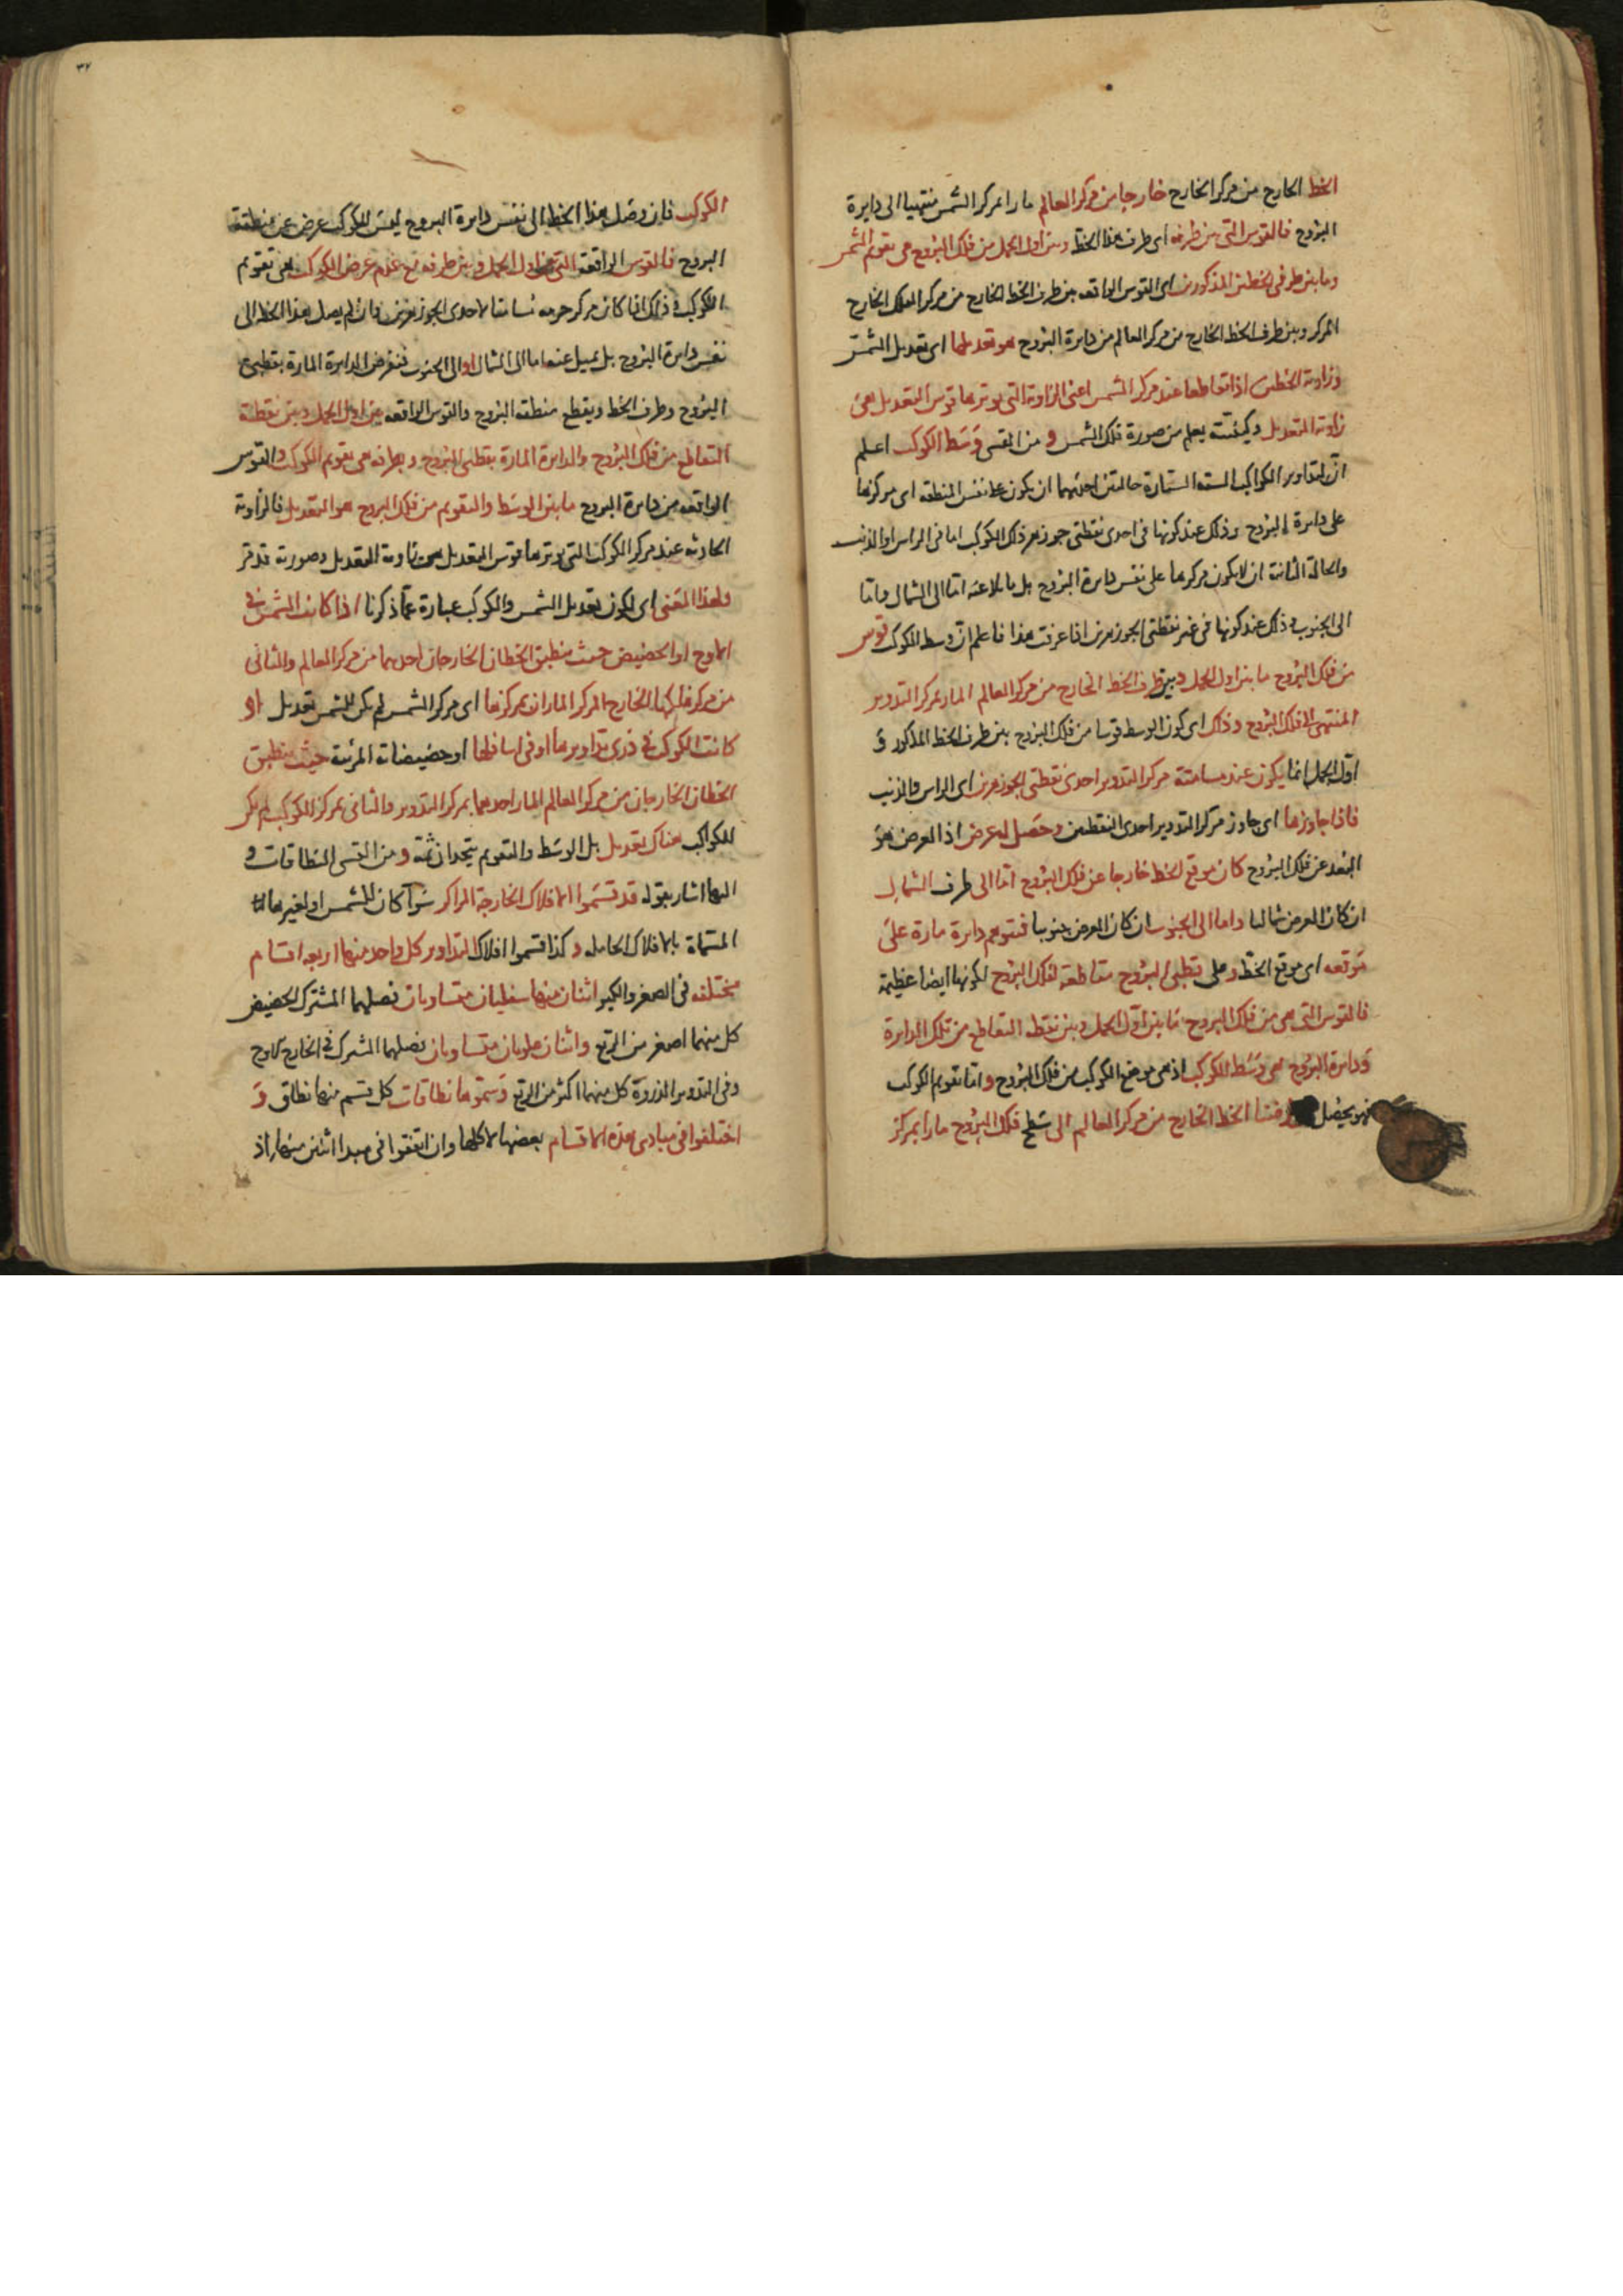 الخط الخارج من مركز الخارج خارجا من مركز العالم مارا بمركز الشمس منتهيا الى دايرة
البروج فالقوس التى بين طرفه اى طرف هذا الخط وبين اول الحمل من فلك البروج هى تقويم الشمس
وما بين طرفى الخطين المذكورين اى القوس الواقعه بين طرف الخط الخارج من مركز الفلك الخارج
المركز وبين طرف الخط الخارج من مركز العالم من دايرة البروج هو تعديلها اى تعديل الشمس
وزاوية الخطين اذا تقاطعا عند مركز الشمس اعنى الزاوية التى يوترها قوس التعديل هى
زاوية التعديل وكيفيته يعلم من صورة فلك الشمس و من القسى وسط الكوكب اعلم
ان لتداوير الكواكب الستة السيارة حالتين احديهما ان يكون على نفس المنطقه اى مركزها
على دايرة البروج وذلك عند كونها فى احدى نقطتى جوزهر ذلك الكوكب اما فى الراس او الذنب
والحالة الثانية ان لا يكون مركزها على نفس دايرة البروج بل مايلا عنه اما الى الشمال واما
الى الجنوب وذلك عند كونها فى غير نقطتى الجوزهرين اذا عرفت هذا فاعلم ان وسط الكوكب قوس
من فلك البروج ما بين اول الحمل وبين طرف الخط الخارج من مركز العالم المار بمركز التدوير
المنتهى الى فلك البروج وذلك اى كون الوسط قوسا من فلك البروج بين طرف الخط المذكور و
اول الحمل انما يكون عند مسامتة مركز التدوير احدى نقطتى الجوزهرين اى الراس والذنب
فاذا جاوزها اى جاوز مركز التدوير احدى النقطتين وحصل له عرض اذ العرض هو
البعد عن فلك البروج كان موقع الخط خارجا عن فلك البروج اما الى طرف الشمال
ان كان العرض شماليا واما الى الجنوب ان كان العرض جنوبيا فتوهم دايرة مارة على
موقعه اى موقع الخط وعلى قطبى البروج متقاطعة لفلك البروج لكونها ايضا عظيمة
فالقوس التى هى من فلك البروج ما بين اول الحمل وبين نقطه التقاطع من تلك الدايرة
ودايرة البروج هى وسط الكوكب اذ هى موضع الكوكب من فلك البروج واما تقويم الكوكب
فهو يحصل الخط الخارج من مركز العالم الى سطح فلك البروج مارا بمركز
الكوكب فان وصل هذا الخط الى نفس دايرة البروج ليس للكوكب عرض عن منطقة
البروج فالقوس الواقعه اول الحمل وبين طرفه مع عدم عرض الكوكب هى تقويم
الكوكب وذلك اذا كان مركز جرمه مسامتا لاحدى الجوزهرين وان لم يصل هذا الخط الى
نفس دايرة البروج بل يميل عنها اما الى الشمال او الى الجنوب فنفرض الدايرة المارة بقطبى
البروج وطرف الخط ويقطع منطقة البروج والقوس الواقعه بين اول الحمل وبين نقطة
التقاطع من فلك البروج والدايرة المارة بقطبى البروج وبطرفه هى تقويم الكوكب والقوس
الواقعه من دايرة البروج ما بين الوسط والتقويم من فلك البروج هو التعديل فالزاوية
الحادثه عند مركز الكوكب التى يوترها قوس التعديل هى زاوية التعديل وصورته قد مر
ولهذا المعنى اى لكون تعديل الشمس والكوكب عبارة عما ذكرنا اذا كانت الشمس فى
الاوج او الحضيض حيث ينطبق الخطان الخارجان احدهما من مركز العالم والثانى
من مركز فلكها الخارج المركز الماران بمركزها اى مركز الشمس لم يكن للشمس تعديل او
كانت الكوكب فى ذرى تداويرها او فى اسافلها او حضيضات المرئية حيث ينطبق
الخطان الخارجان من مركز العالم المار احدهما بمركز التدوير والثانى بمركز الكوكب لم يكن
للكواكب هناك تعديل بل الوسط والتقويم يتحدان ثمة و من القسى النطاقات و
اليها اشار بقوله قد قسموا الافلاك الخارجة المراكز سواء كان للشمس او لغيرها
المسماة بالافلاك الحاملة وكذا قسموا افلاك التداوير كل واحد منها اربعه اقسام
مختلفه فى الصغر والكبر اثنان منها سفليان متساويان فصلهما المشترك الحضيض
كل منهما اصغر من الربع واثنان علويان متساويان فصلهما المشترك فى الخارج الاوج
وفى التدوير الذروة كل منهما اكثر من الربع وسموها نطاقات كل قسم منها نطاق و
اختلفوا فى مبادى هذه الاقسام بعضها لا كلها وان اتفقوا فى مبدا اثنين منها اذ